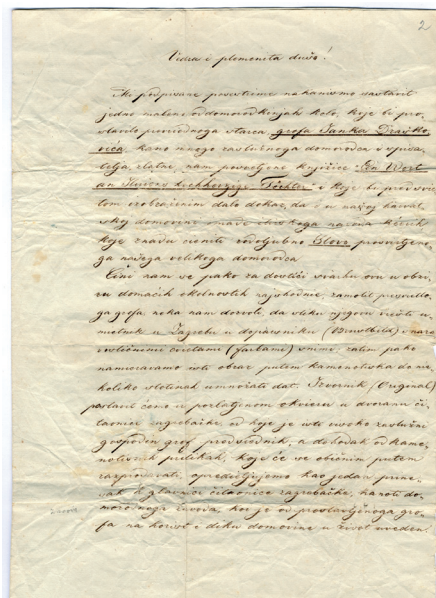 2
Vedra i plemenita dušo!
Mi podpisane posestrime nakanismo sastaviti
jedno maleno od domorodkinjah kolo, koje bi pro-
slavilo prvoga starca, grofa Janka Drašk-
ovića, kano mnogo zaslužnoga domorodca i spisa-
telja zlatne nam povoljene knjižice Ein Wort
an Iliriens hochherzige Töchter i koje bi pred svie-
tom dalo dokaz, da i u našoj
domovini imade ženskoga naroda kćerih
koje znadu cieniti rodoljubno slovo
ga našega velikoga domorodca
Čini nam se pako za dostići svarhu ovu u obzi-
ru domaćih okolnostih najshodnie, zamoliti presvietlo-
ga grofa neka nam dozvoli, da sliku njegovu viešt u-
mietnik u Zagrebu u doprsniku (Brustbild) s nara-
vnimi cvietami (farbami) snime, zatim pako
namieravamo isti obraz putem kamenotiska do ne-
koliko stotinah umnožati dat. Izvornik (Original)
postavit ćemo u pozlatjenom okviru u dvoranu či-
taonice zagrebačke, od koje je isti visoko zaslužni
gospodin grof predsiednik, a dohodak od kame-
notisnih prilikah, koje će se običnim putem
razprodavati, opredieljujemo kao jedan prine-
sak k glavnici čitaonice zagrebačke, kanoti do-
morodnoga zavoda, koj je od proslavljenoga gro-
fa na korist i diku domovine u život uveden.